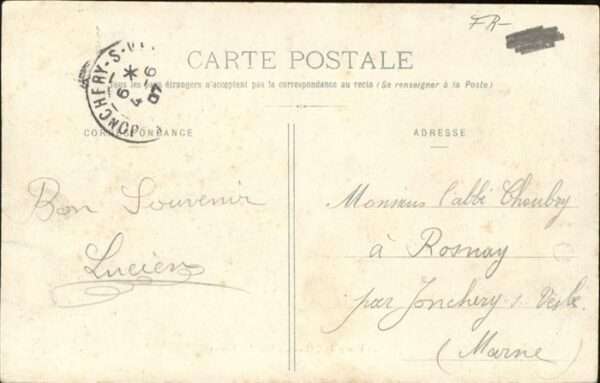 FR-
CARTE POSTALE
Tous les pays étrangers n'acceptent pas la correspondance au recto (Se renseigner à la Poste)
JONCHERY-S-V
6
07
CORRESPONDANCE
ADRESSE
Bon Souvenir
Lucien
Monsieur l'abbé Choubry
à Rosnay
par Jonchery-s. Vesle
(Marne)